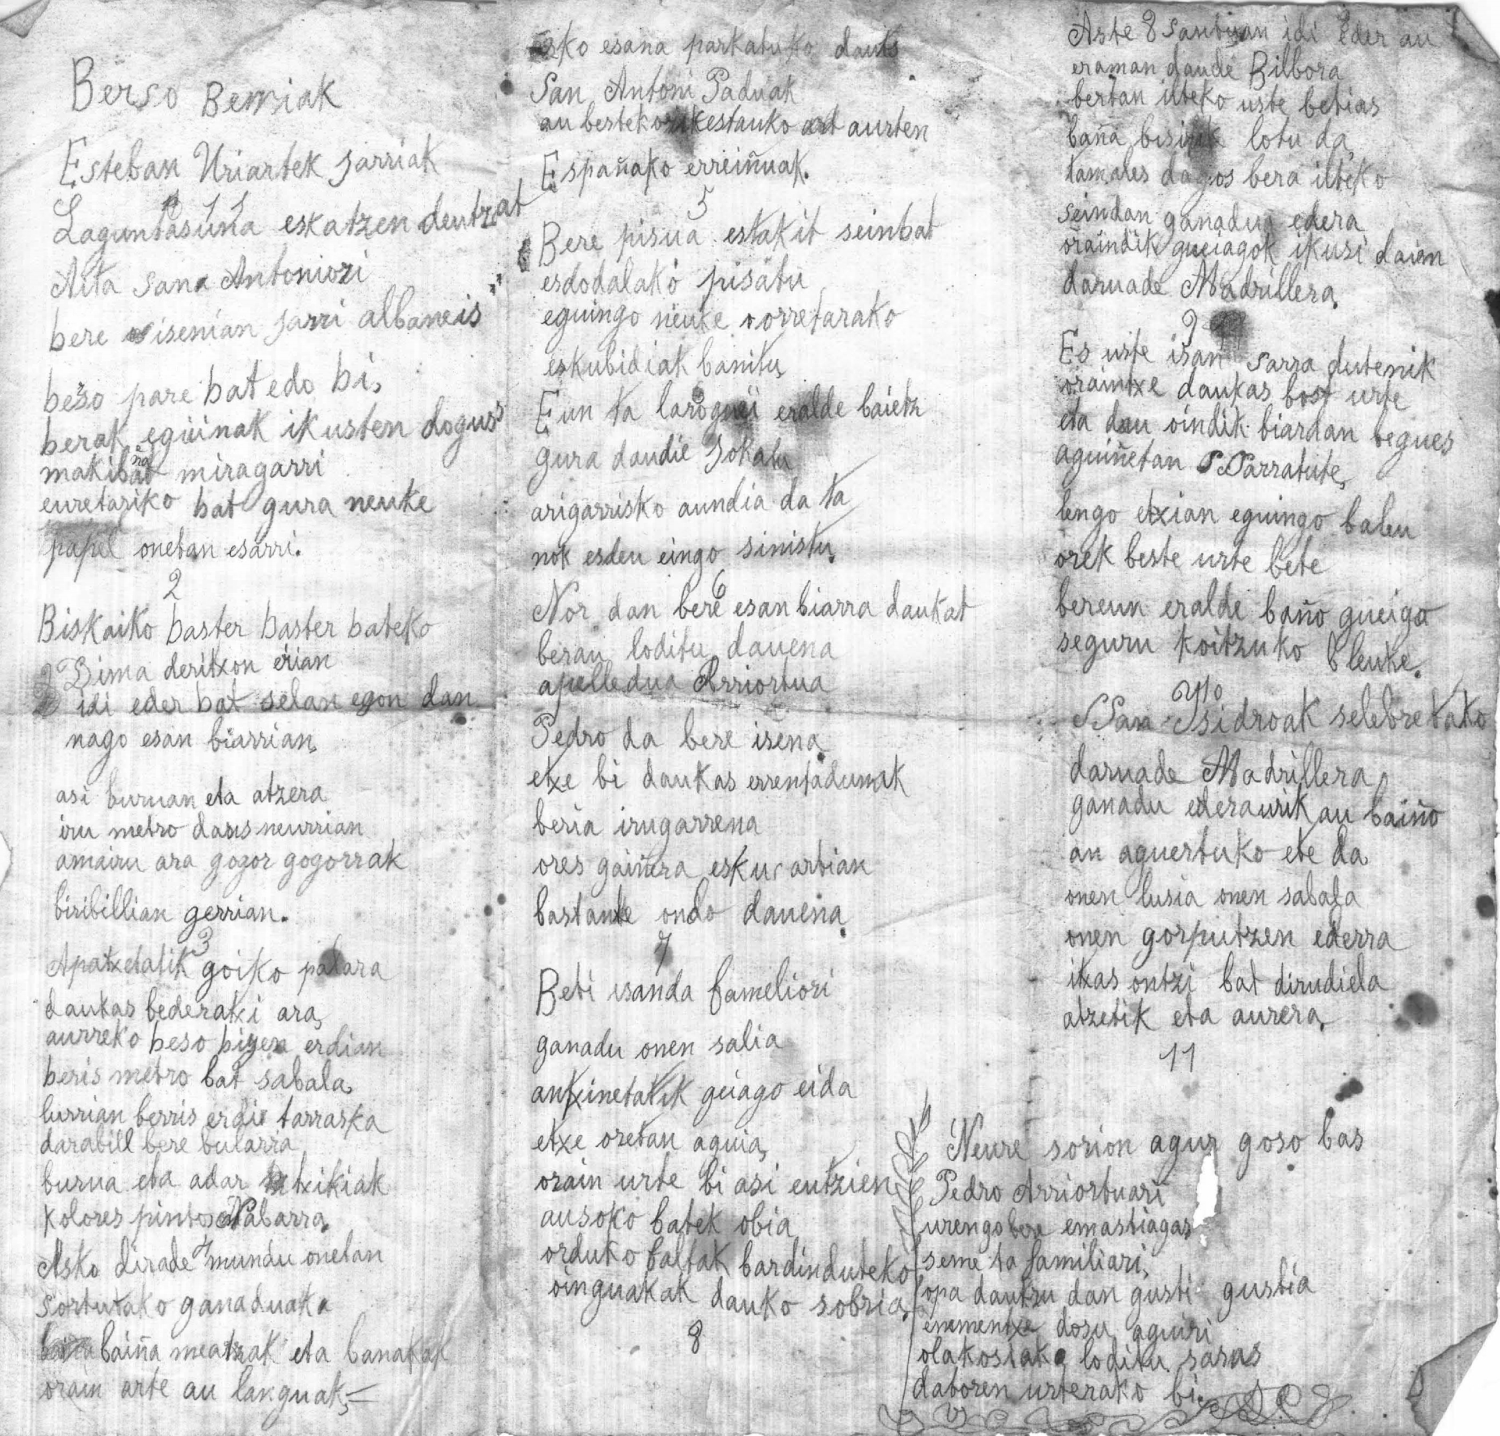 Berso Berriak
Esteban Uriartek Jarriak
1
Laguntasuna eskatzen deutzat
Aita sana Antoniori
bere isenian jarri albaneis
beso pare bat edo bi,
berak eguinak ikusten dogus
makibat miragarri
euretariko bat gura neuke
papel onetan esarri.
2
Biskaiko baster baster bateko
Dima deritxon erian
idi eder bat selan egon dan
nago esan biarrian,
asi buruan eta atzera
iru metro daus neurrian
amairu ara gogor gogorrak
biribillian gerrian.
3
Apatxetatik goiko patara
daukas bederatxi ara,
aurreko beso bigen erdian
beris metro bat sabala,
lurrian berris erdie tarraska
darabill bere bularra
burua eta adar txikiak
kolores pinto Nabarra,
4
Asko dirade mundu onetan
sortutako ganaduak
baiña meatzak eta banakak
orain arte au languak,
esko esana parkatuko dauts
San Antoni Paduak
au bestekorik estauko aurten
Españako erreiñuak.
5
Bere pisua estakit seinbat
esdodalako pisatu
eguingo neuke orretarako
eskubidiak banitu,
Eun ta larogueï eralde baietz
gura daudie Jokatu
arigarrisko aundia da ta
nok esdeu eingo sinistu,
6
Nor dan bere esan biarra daukat
berau loditu dauena
apelledua Arriortua
Pedro da bere isena
etxe bi daukas errentadunak
beria irugarrena
ores gaiñera eskuartian
bastante ondo dauena,
7
Beti isanda fameliori
ganadu onen salia
antxinetatik geiago eida
etxe oretan aguia,
orain urte bi asi eutzien
ausoko batek obia
orduko faltak bardinduteko
oinguakak dauko sobria,
8
Aste Santuan idi eder au
eraman daude Bilbora
bertan ilteko uste betias
baña bisirik lotu da,
tamales dagos bera ilteko
seindan ganadu edera
oraindik gueiagok ikusi daien
daruade Madrillera,
9
Es uste isan sarra dutenik
oraintxe daukas bost urte
eta dau oindik biardan begues
aguiñetan Parratute,
lengo etxian eguingo baleu
orek beste urte bete
bereun eralde baño gueigo
seguru koitzuko leuke,
10
San Isidroak selebretako
daruade Madrillera,
ganadu ederaurik au baiño
an aguertuko ete da
onen lusia onen sabala
onen gorputzen ederra
itxas ontzi bat dirudiela
atzetik eta aurera,
11
Neure sorion agur goso bas
Pedro Arriortuari
urengo bere emastiagas
seme ta familiari,
opa dautzu dan gusti gustia
emmentxe dosu aguiri
olakosiak loditu saras
datoren urterako bi.